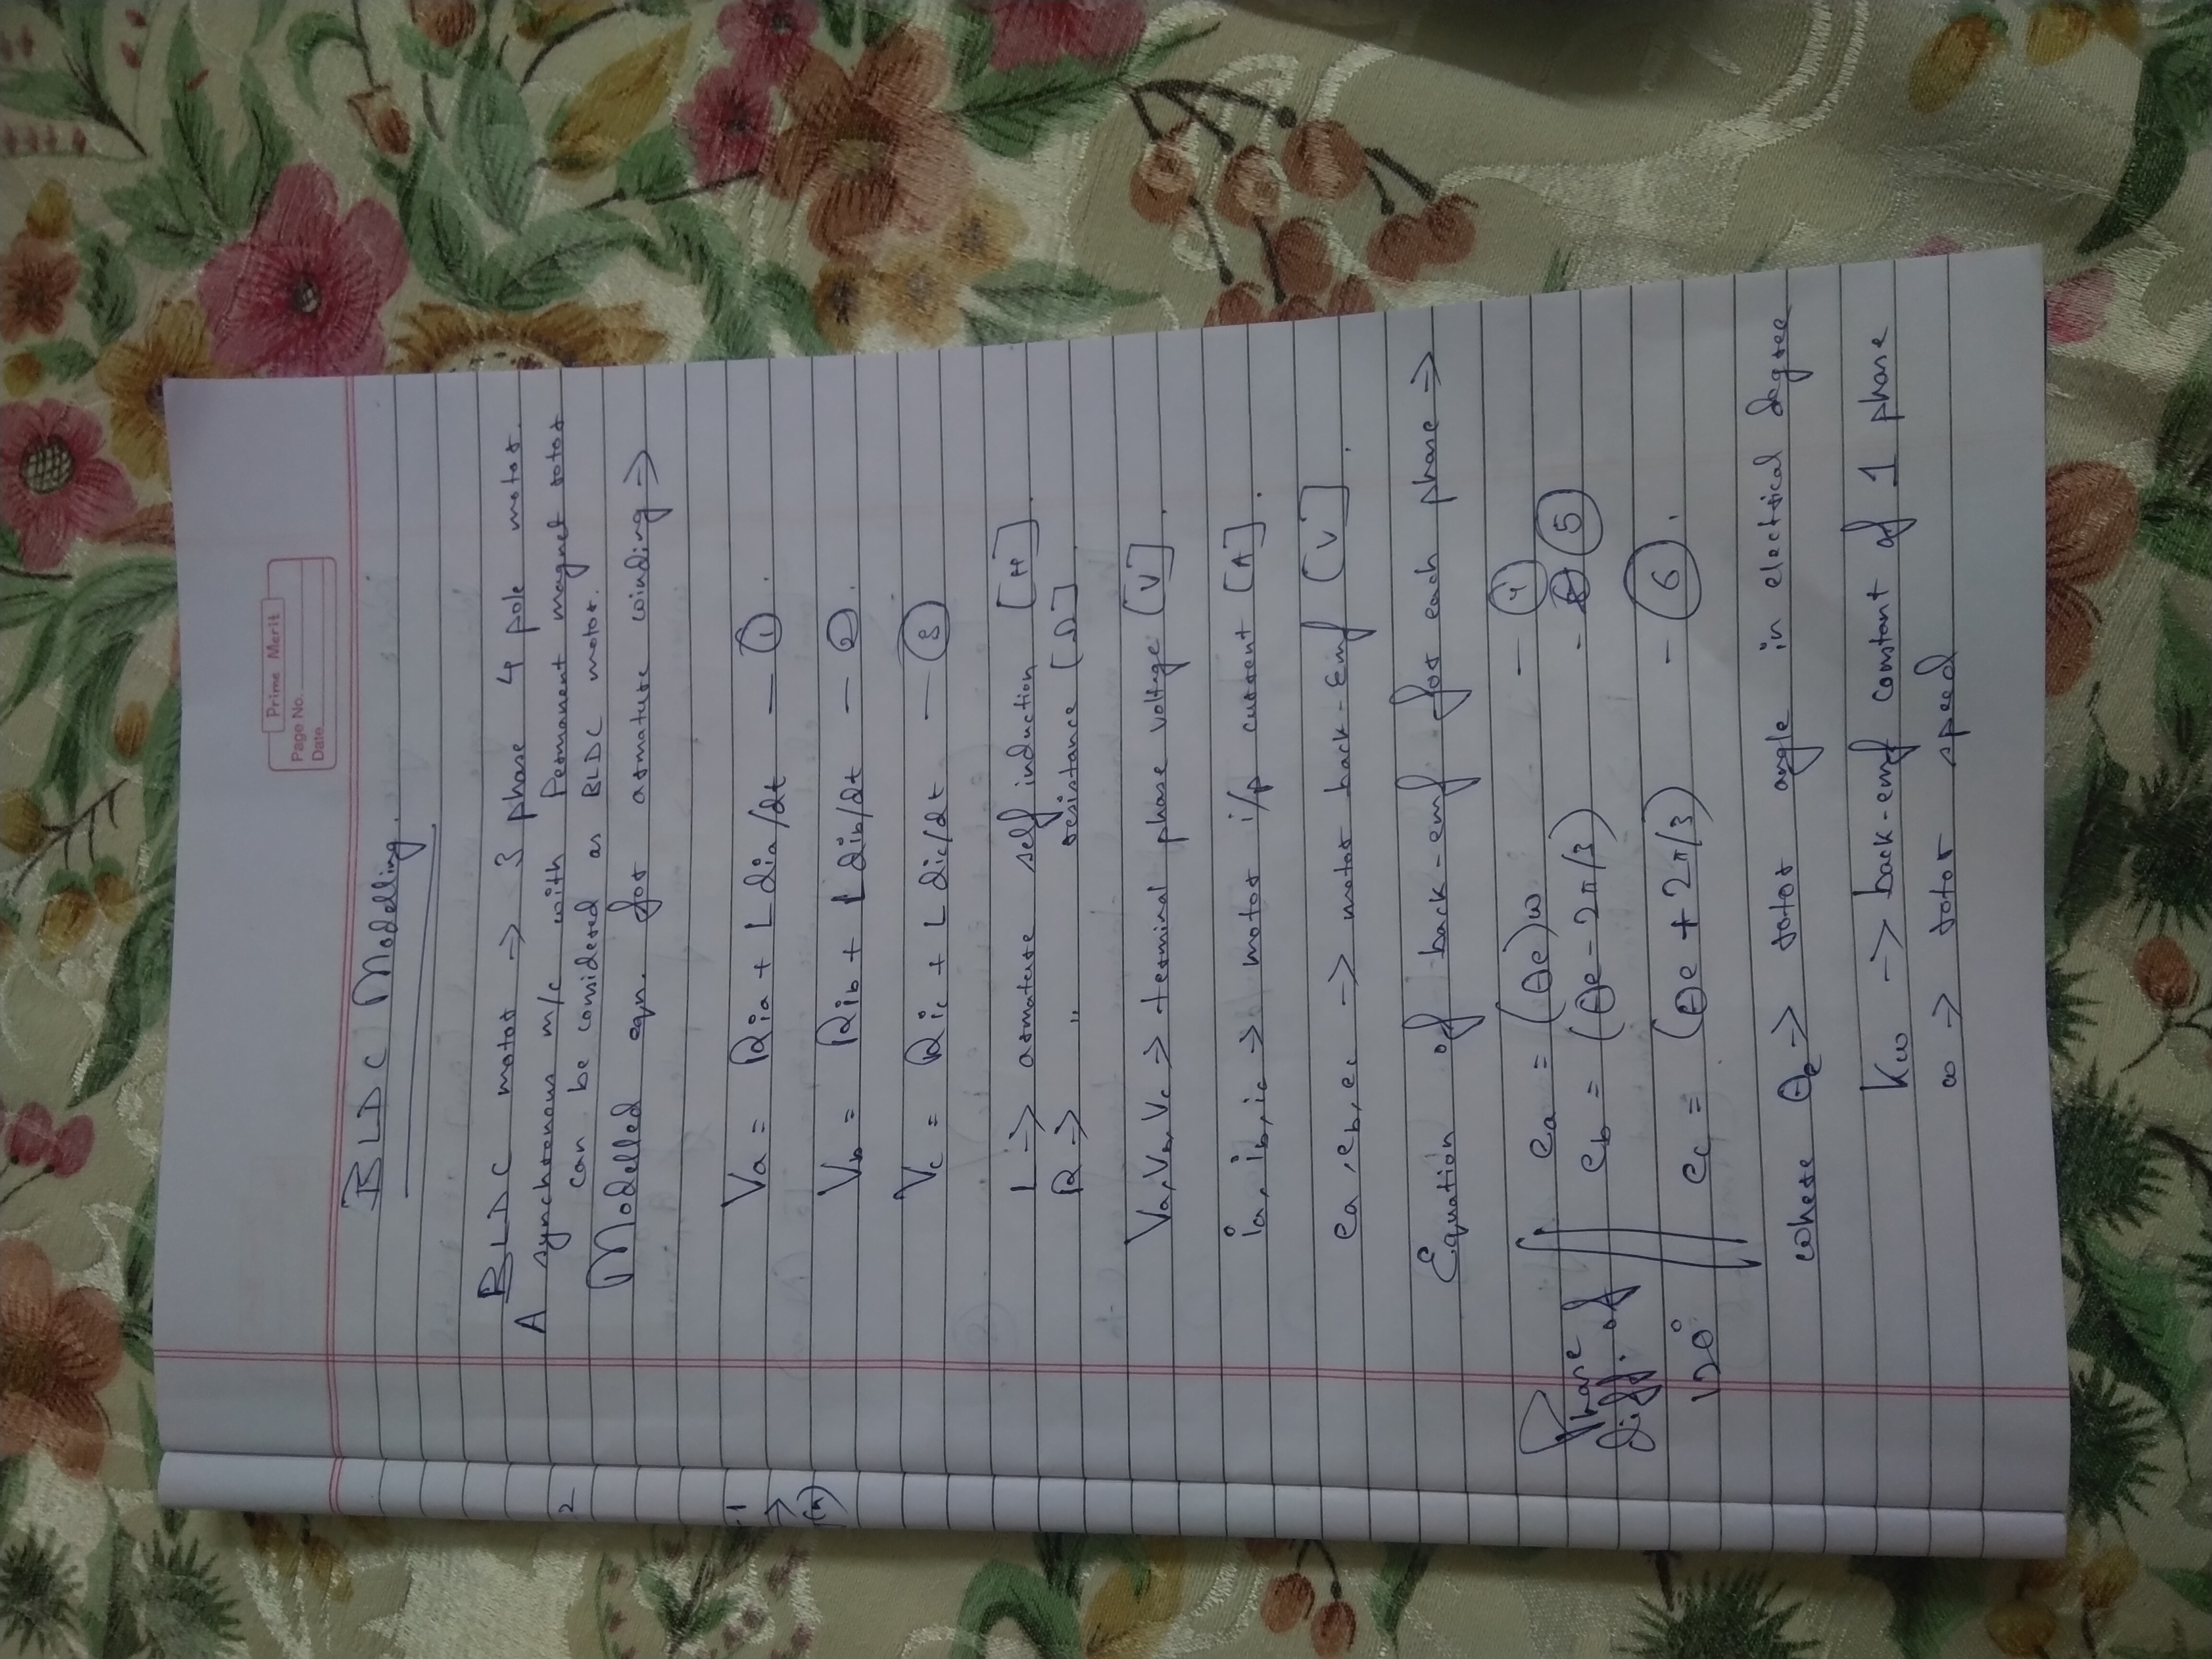 Prime Merit
Page No.
Date
BLDC Modelling.
BLDC motor → 3 phase 4 pole motor.
A synchronous m/c with Permanent magnet rotor
can be considered as BLDC motor.
Modelled eqn. for armature winding →
Va = Ria + L dia/dt — ①.
Vb = Rib + L dib/dt — ②.
Vc = Ric + L dic/dt — ③
L → armature self induction [H].
R → " resistance [Ω].
Va, Vb, Vc → terminal phase voltage [V].
ia, ib, ic → motor i/p current [A].
ea, eb, ec → motor back-Emf [V].
Equation of back-emf for each phase →
ea = (θe)ω — ④
eb = (θe - 2π/3) - ⑤
ec = (θe + 2π/3) - ⑥.
Phase
diff. of
120°
where θe → rotor angle in electrical degree
Kω → back-emf constant of 1 phase
ω → rotor speed